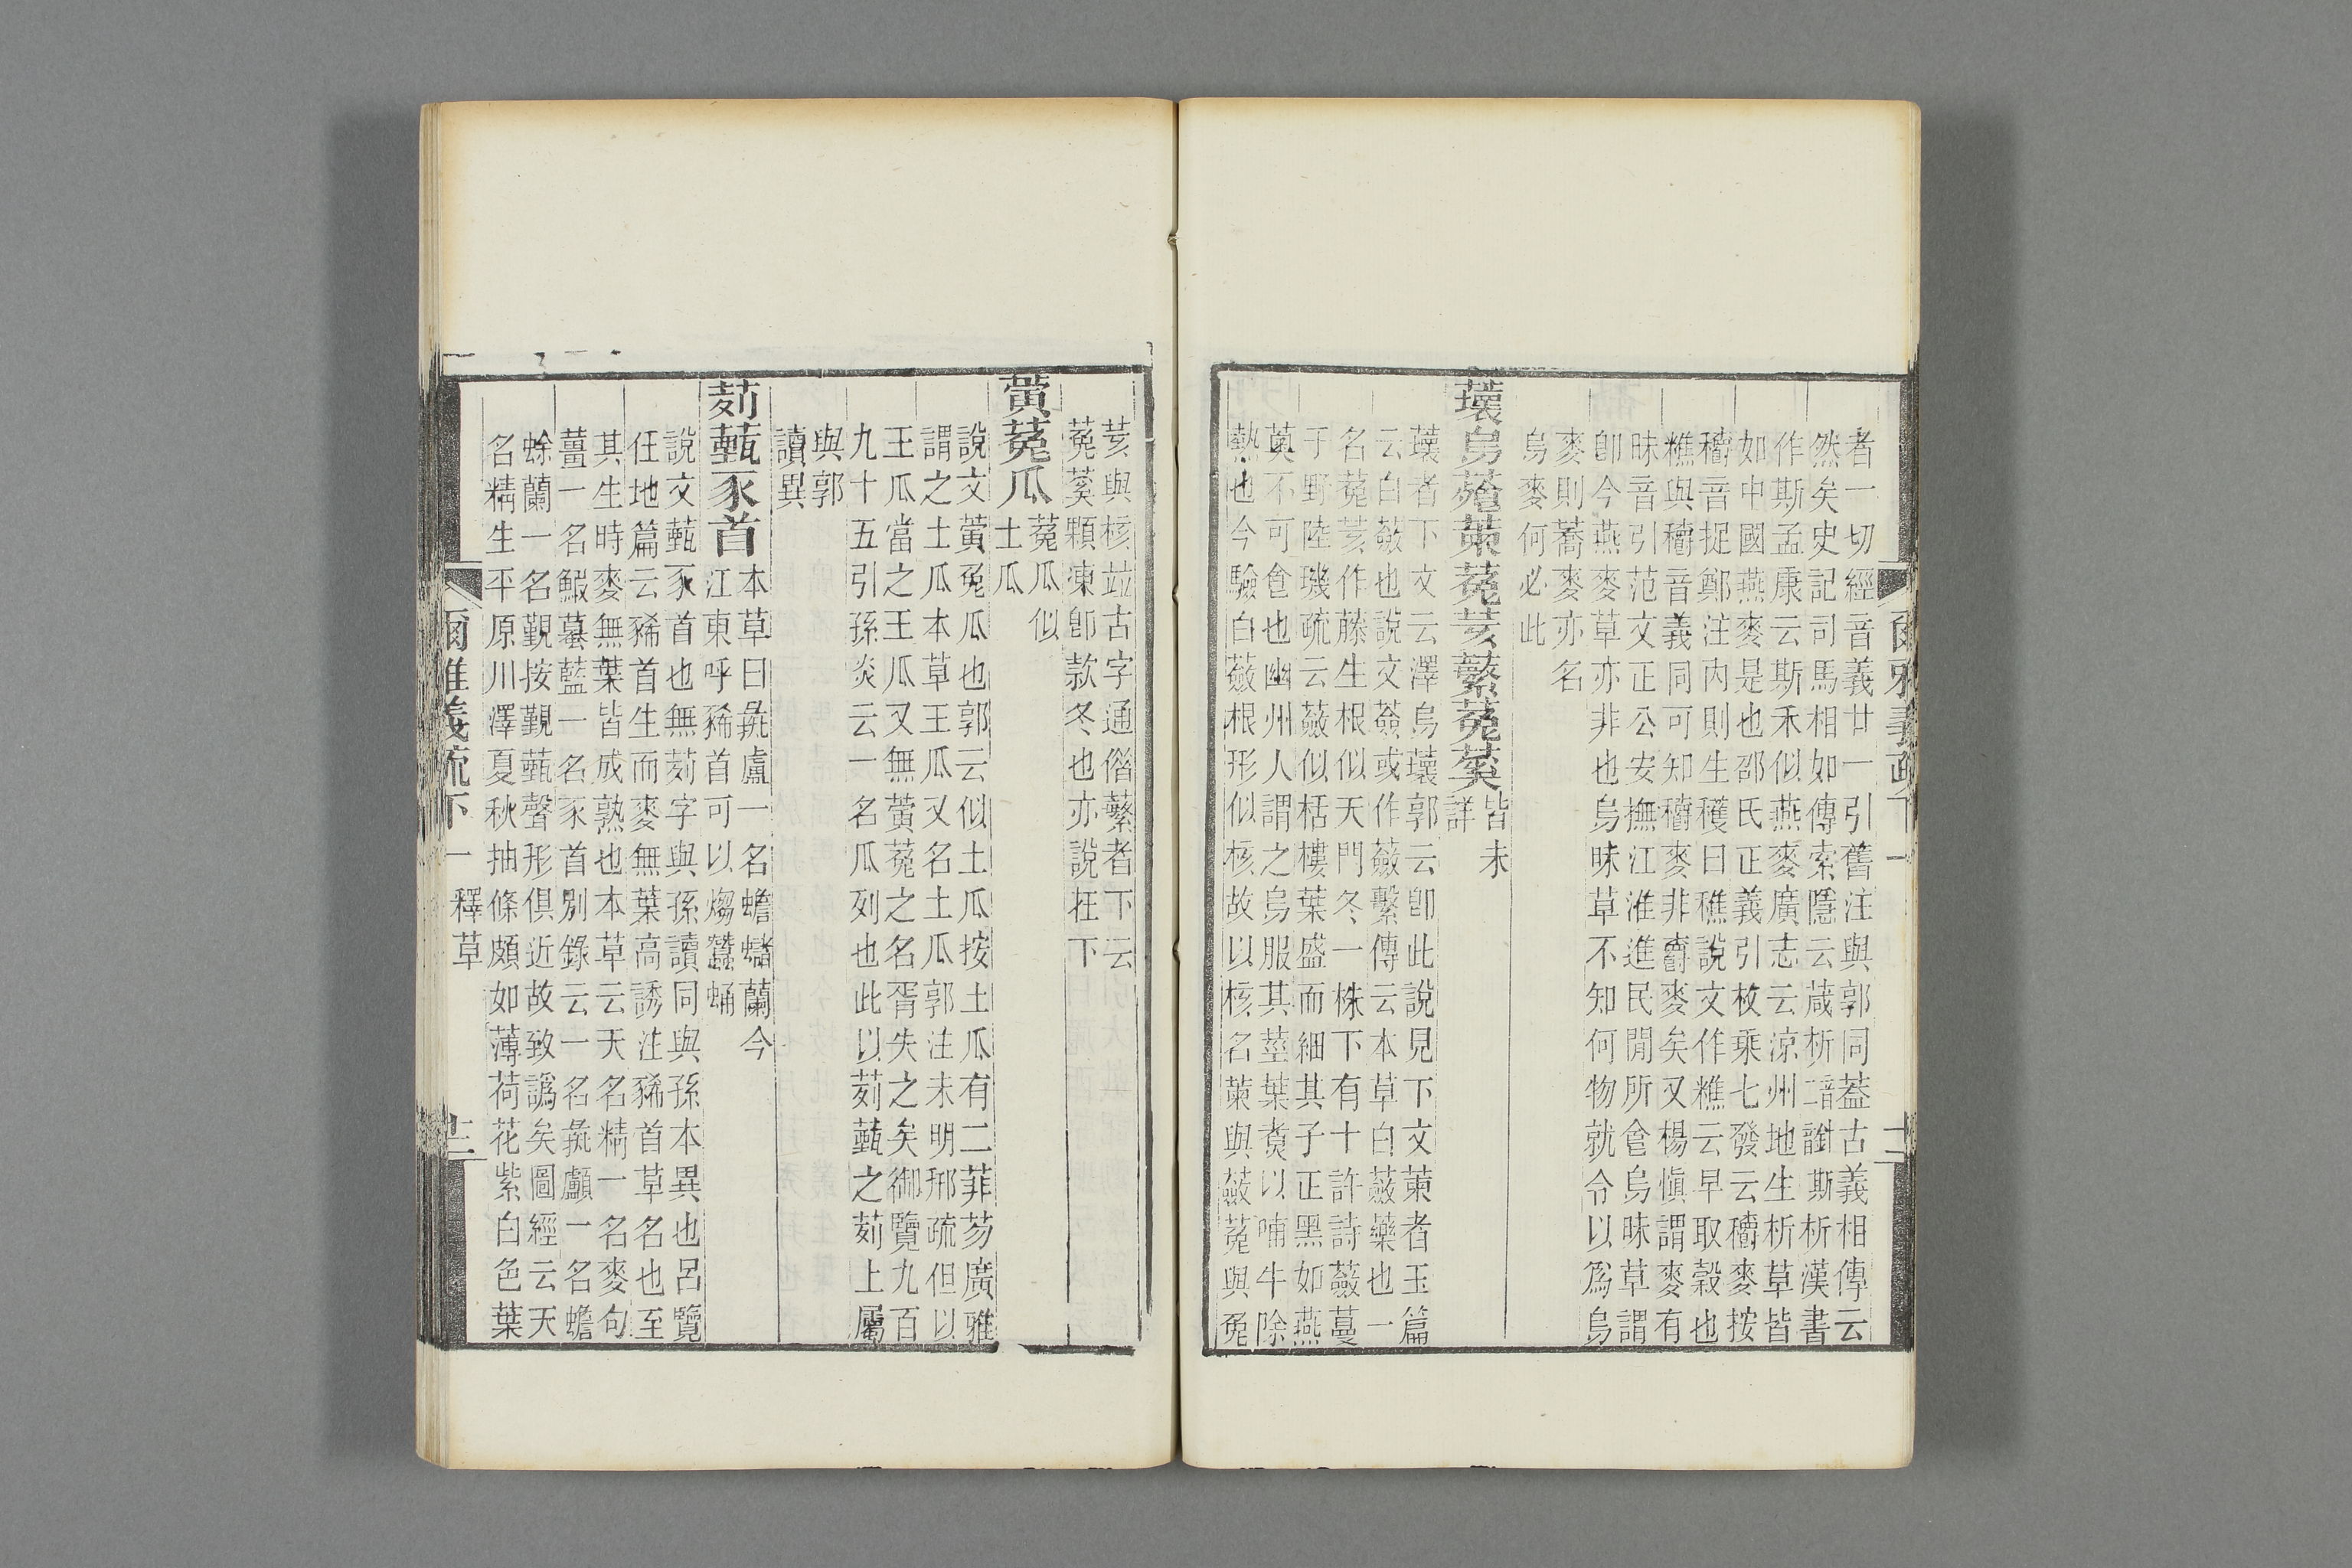 者一切經音義廿一引舊注與郭同葢古義相傳云
然矣史記司馬相如傳索隱云葴析音斯析漢書
作斯孟康云斯禾似燕麥廣志云涼州地生析草皆
如中國燕麥是也邵氏正義引枚乘七發云穱麥按
穱音捉鄭注内則生穫曰穛說文作糕云早取穀也
糕與穱音義同可知穱麥非䨲麥矣又楊愼謂麥有
昧音引范文正公安撫江淮進民閒所食烏昧草謂
卽今燕麥草亦非也烏昧草不知何物就令以爲烏
麥則蕎麥亦名
烏麥何必此
蘾烏蕵蔈菟荄蘩菟蒵
皆未
詳
蘾者下文云澤烏蘾郭云卽此說見下文蔈者玉篇
云白蘞也說文薟或作蘞繫傳云本草白蘞藥也一
名菟荄作藤生根似天門冬一株下有十許詩蘞蔓
于野陸璣疏云蘞似栝樓葉盛而細其子正黑如燕
薁不可食也幽州人謂之烏服其莖葉煑以哺牛除
熱也今驗白蘞根形似核故以核名蔈與蘞菟與兔
荄與核竝古字通借蘩者下云
菟蒵顆凍卽款冬也亦說在下
黃菟瓜
菟瓜似
土瓜
說文黃兔瓜也郭云似土瓜按土瓜有二菲芴廣雅
謂之土瓜本草王瓜又名土瓜郭注未明邢疏但以
王瓜當之王瓜又無黃菟之名胥失之矣御覽九百
九十五引孫炎云一名瓜列也此以茢薽之茢上屬
與郭
讀異
茢薽豕首
本草曰彘盧一名蟾蠩蘭今
江東呼豨首可以煼蠶蛹
說文薽豕首也無茢字與孫讀同與孫本異也呂覽
任地篇云豨首生而麥無葉高誘注豨首草名也至
其生時麥無葉皆成熟也本草云天名精一名麥句
薑一名蝦蟇藍一名豕首別錄云一名彘顱一名蟾
蜍蘭一名覲按覲薽聲形俱近故致譌矣圖經云天
名精生平原川澤夏秋抽條頗如薄荷花紫白色葉
爾雅義疏下一 釋草